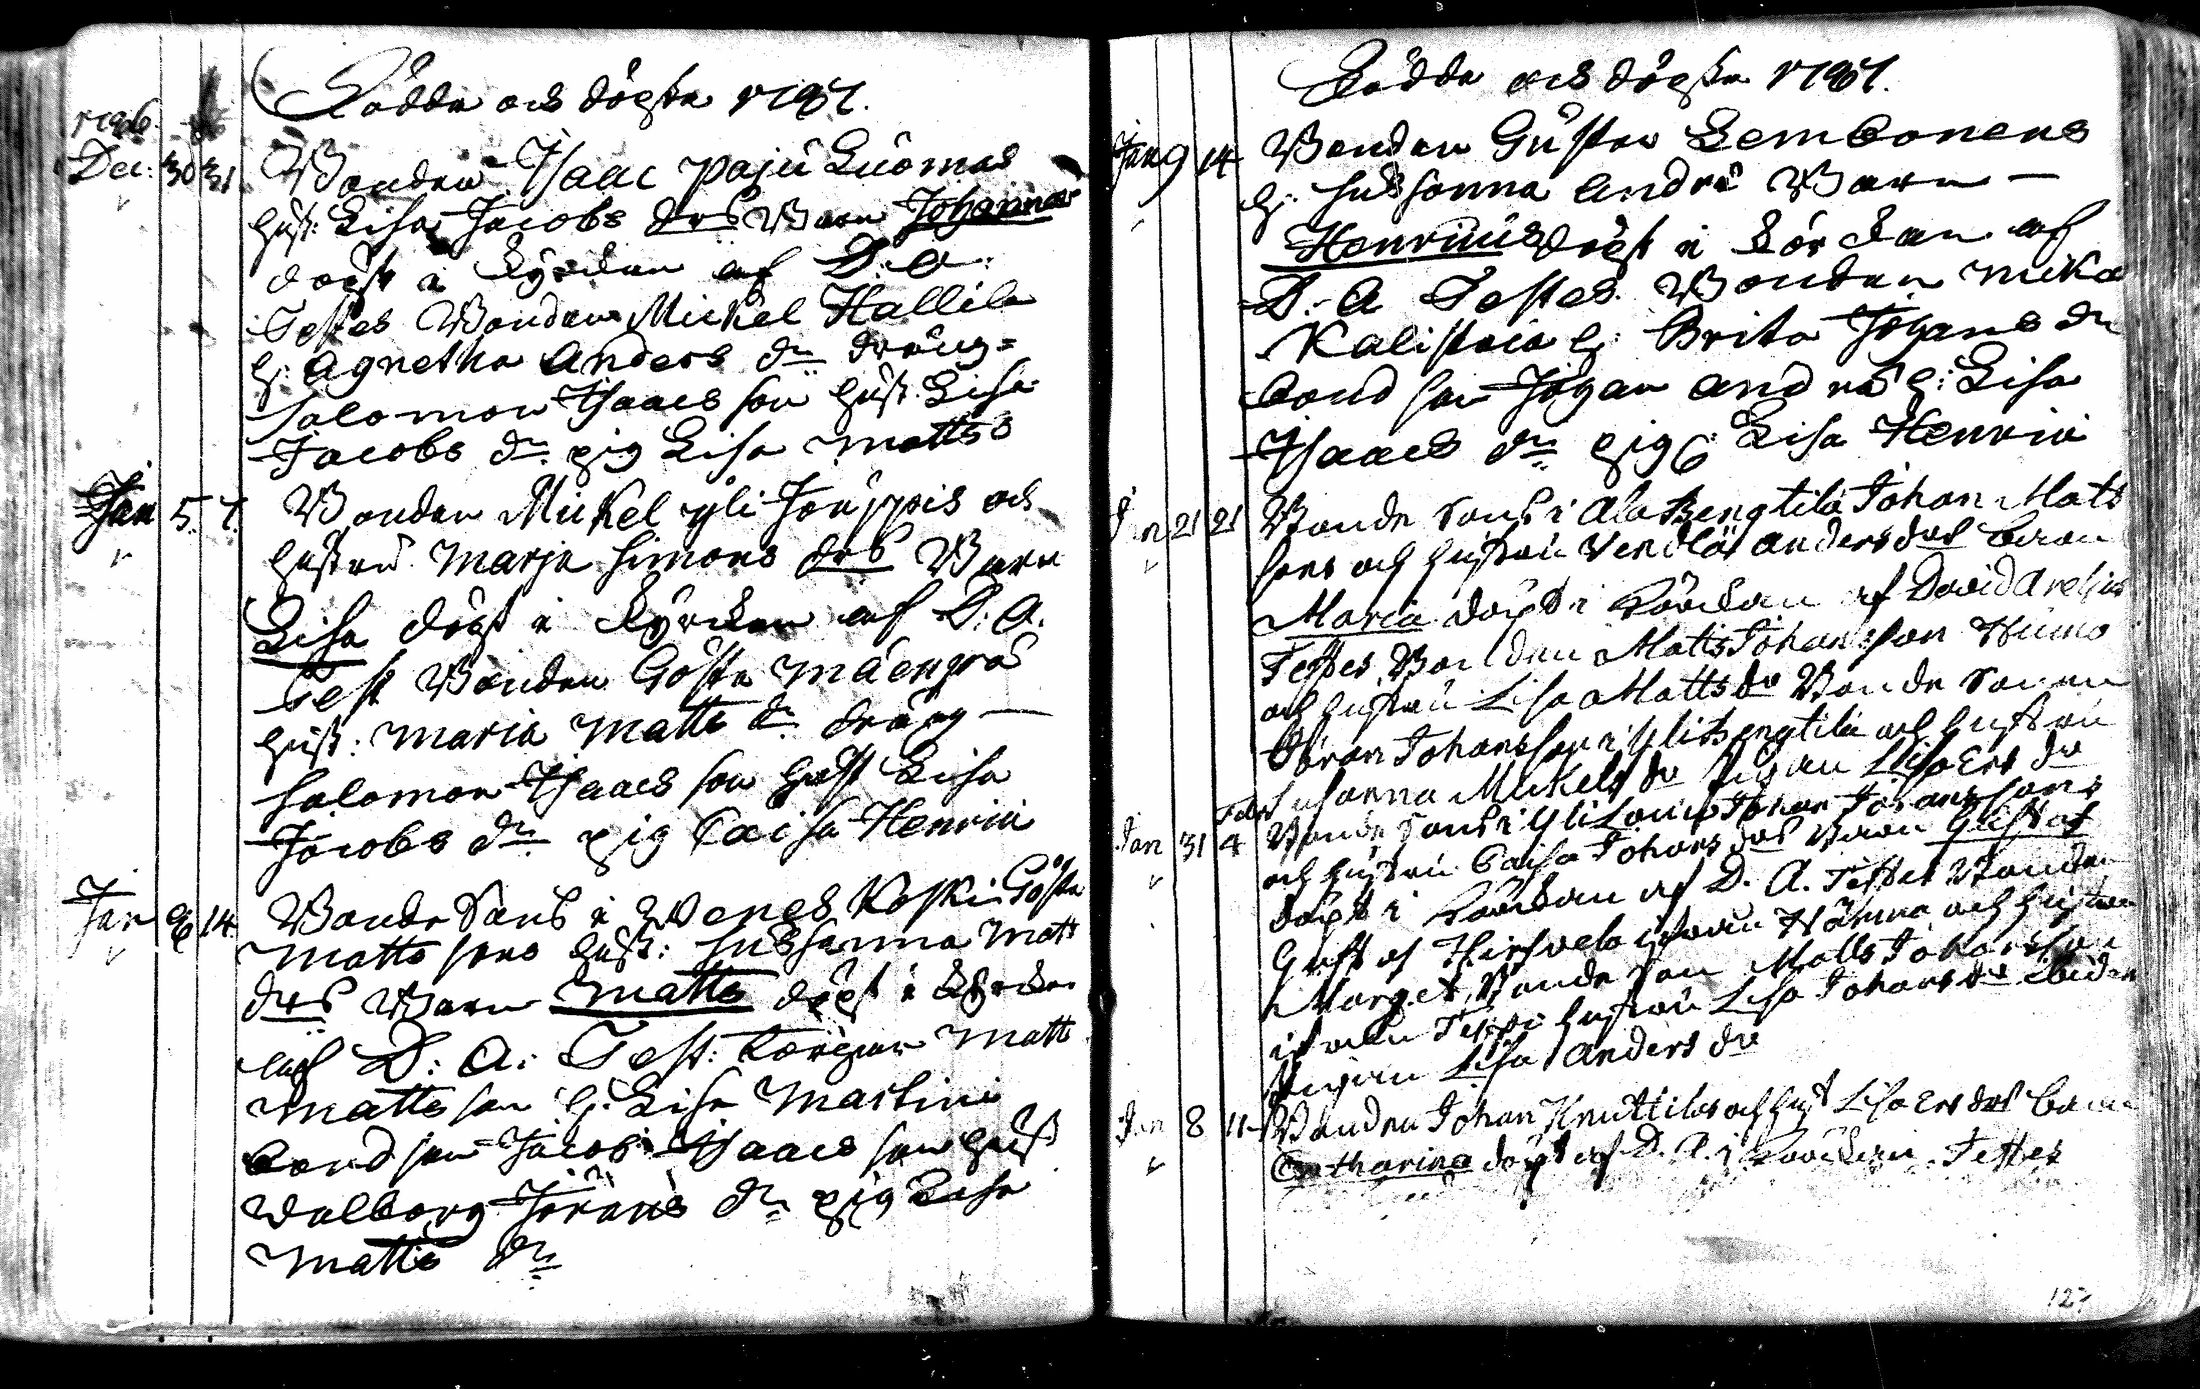 Födde och döpte 1797.
1796.
Dec: 30 31 Bonden Isaac Paju Luomas
hust: Lisa Jacobs drs Barn Johannes
döpt i kyrckan af D: A:
Testes Bonden Mickel Hallila
h: Agnetha Anders dr dräng=
Salomon Isaacs son hust. Lisa
Jacobs dr. pig Lisa Matts
Jan 5. 7. Bonden Mickel yli Jouppis och
hustru Marja Simons drs Barn
Lisa döpt i kyrckan af D: A.
Test Bonden Gösta
hust: Maria Matts dr dräng
Salomon Isaacs son hust Lisa
Jacobs dr pig Caisa Henric
Jan 8 14 Bonde Sons i Weneskoski Gösta
Matts sons hust: Sussanna Matts
drs Barn Matts döpt i kyrckan
af D: A: Test: Matts
Matts son h: Lisa Martini
bond son Jacob Isaacs son hust
Walborg Jörans dr pig Lisa
Matts dr
Födde och döpte 1797.
Jan 9 14 Bonden Gustav Lembonens
h: Sussanna Andre Barn
Henricus döpt i körckan af
D: A Testes. Bonden Mickel
Kalistaia h: Brita Johans dr
bond son Johan Andre h: Lisa
Isaacs dr pig Lisa Henric
Jan 21 21 Bonde Sons i Ala Bengtila Johan Mats
sons och hustru Vendla Anders dos barn
Maria döpt i körckan af David Arelius
Testes, Bonden Matts Johansson Huimo
och hustru Lisa Matts dr Bonde Sonen
Göran Johansson i Yli Bengtila och hustru
Susanna Mickels dr Pigan Lisa Ers dr
Jan 31 Febr 4 Bonde Sons i Yli Johan Johanssons
och hustru Caisa Johans dos Barn Gustaf
döpt i körckan af D. A. Testes Bonden
Gustaf Hirsvela och hustru
Marget, Bonde Son Matts Johansson
hustru Lisa Johans dr
Pigan Lisa Anders dr
Jan 8 11 Bonden Johan Knuttilas och hust Lisa Ers dos barn
Catharina döpt af D. A. i körckan. Testes
127